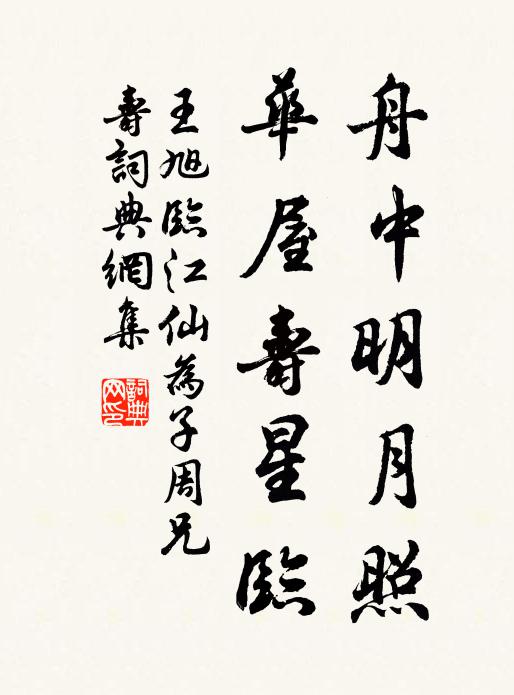 舟中明月照
華屋壽星臨
王旭臨江仙為子周兄
壽詞典網集
詞典網印